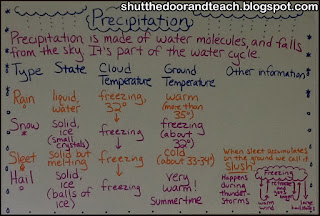 shutthedoorandteach.blogspot.com
Precipitation
Precipitation is made of water molecules, and falls
from the sky. It's part of the water cycle.
Type State Cloud Temperature Ground Temperature Other information
Rain liquid, water freezing, 32° warm (more than 35°)
Snow solid, ice (small crystals) freezing freezing (about 32°)
Sleet solid but melting freezing cold (about 33-34°) When sleet accumulates on the ground we call it slush.
Hail solid, ice (balls of ice) freezing very warm! Summertime Happens during thunder storms
freezing
warm wind